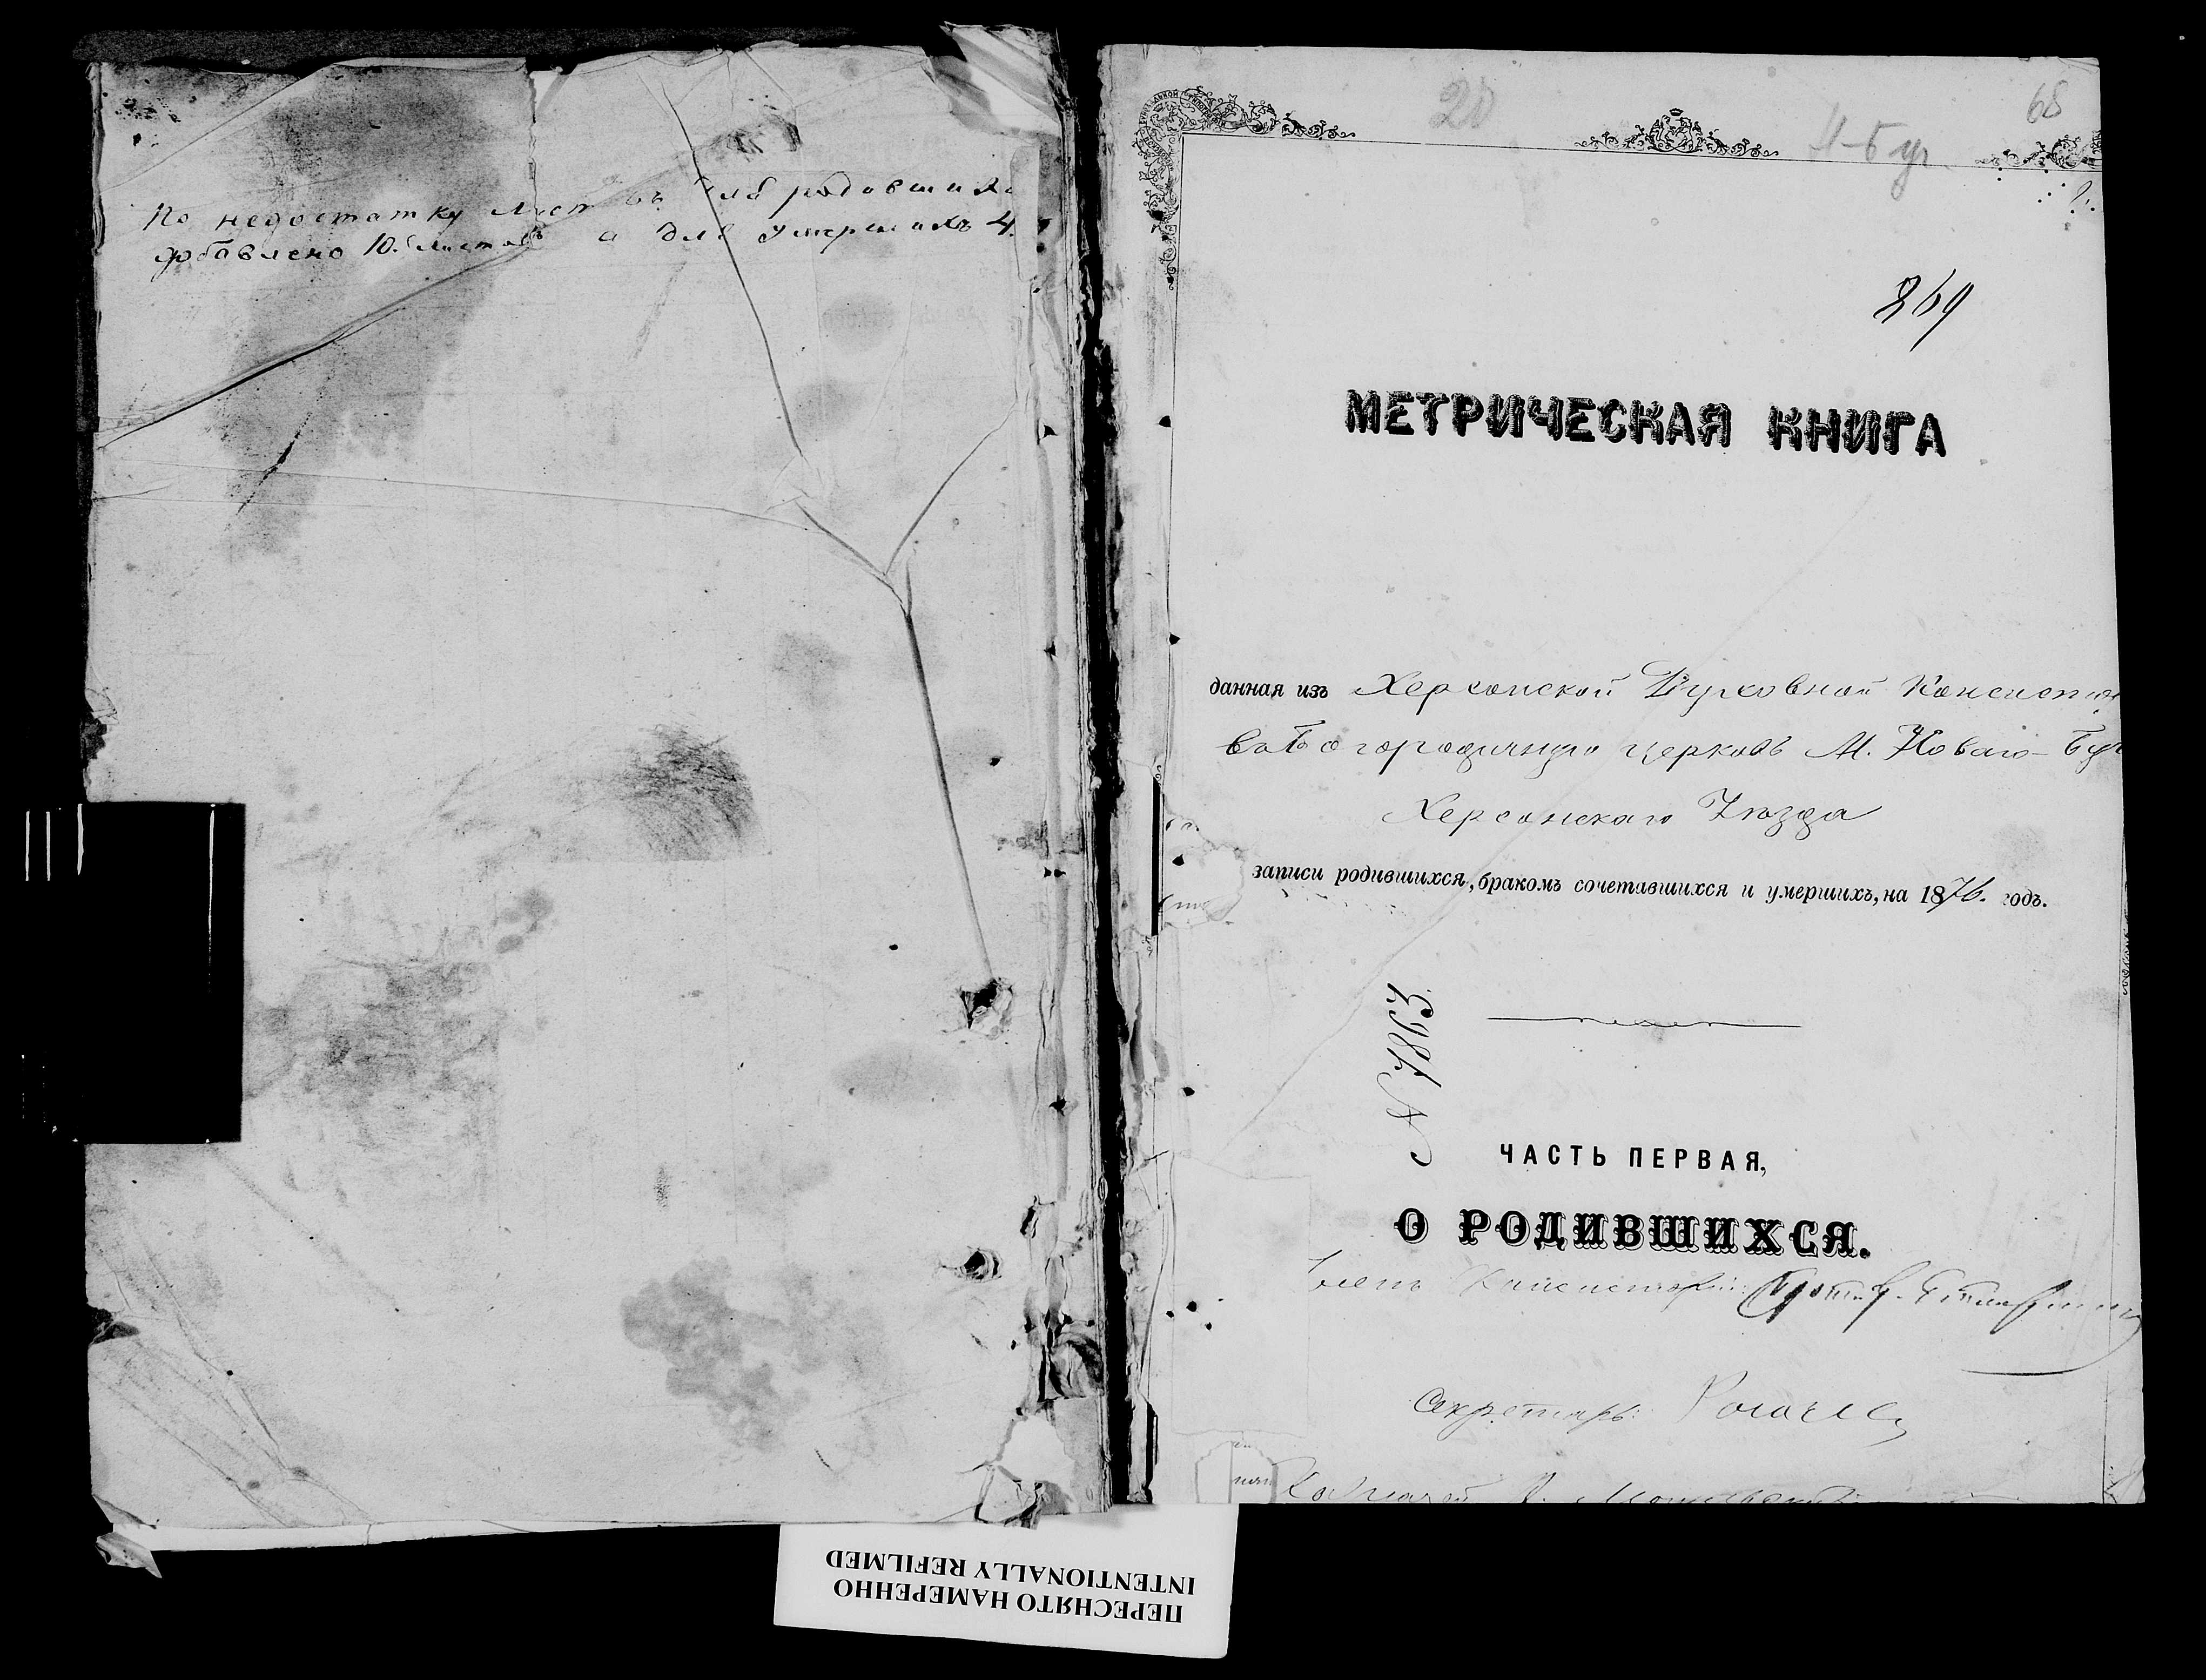 По недостатку листовъ для родившихс
добавлено 10. листовъ а для умершихъ 4.
20
68
869
МЕТРИЧЕСКАЯ КНИГА
данная изъ Херсонской Духовной Консистор
въ Богородичную церковь М. Новаго-Буг
Херсонскаго Уѣзда
записи родившихся, бракомъ сочетавшихся и умершихъ, на 1876. годъ.
ЧАСТЬ ПЕРВАЯ,
О РОДИВШИХСЯ.
Членъ Консисторіи
Секретарь:
ПЕРЕСНЯТО НАМЕРЕННО
INTENTIONALLY REFILMED